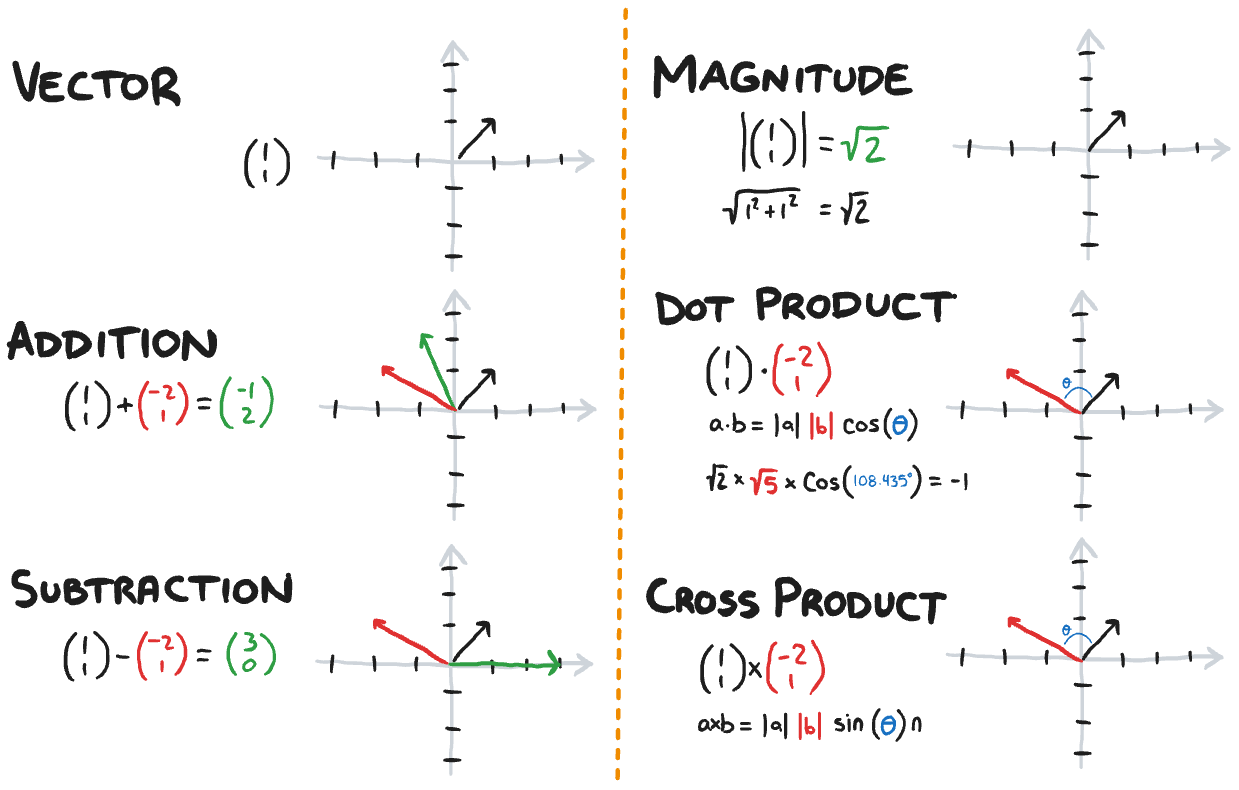 VECTOR
(1 1)
ADDITION
(1 1) + (-2 1) = (-1 2)
SUBTRACTION
(1 1) - (-2 1) = (3 0)
MAGNITUDE
|(1 1)| = √2
√1²+1² = √2
DOT PRODUCT
(1 1) · (-2 1)
θ
a·b = |a| |b| cos(θ)
√2 × √5 × Cos(108.435°) = -1
CROSS PRODUCT
(1 1) × (-2 1)
θ
a×b = |a| |b| sin(θ) n